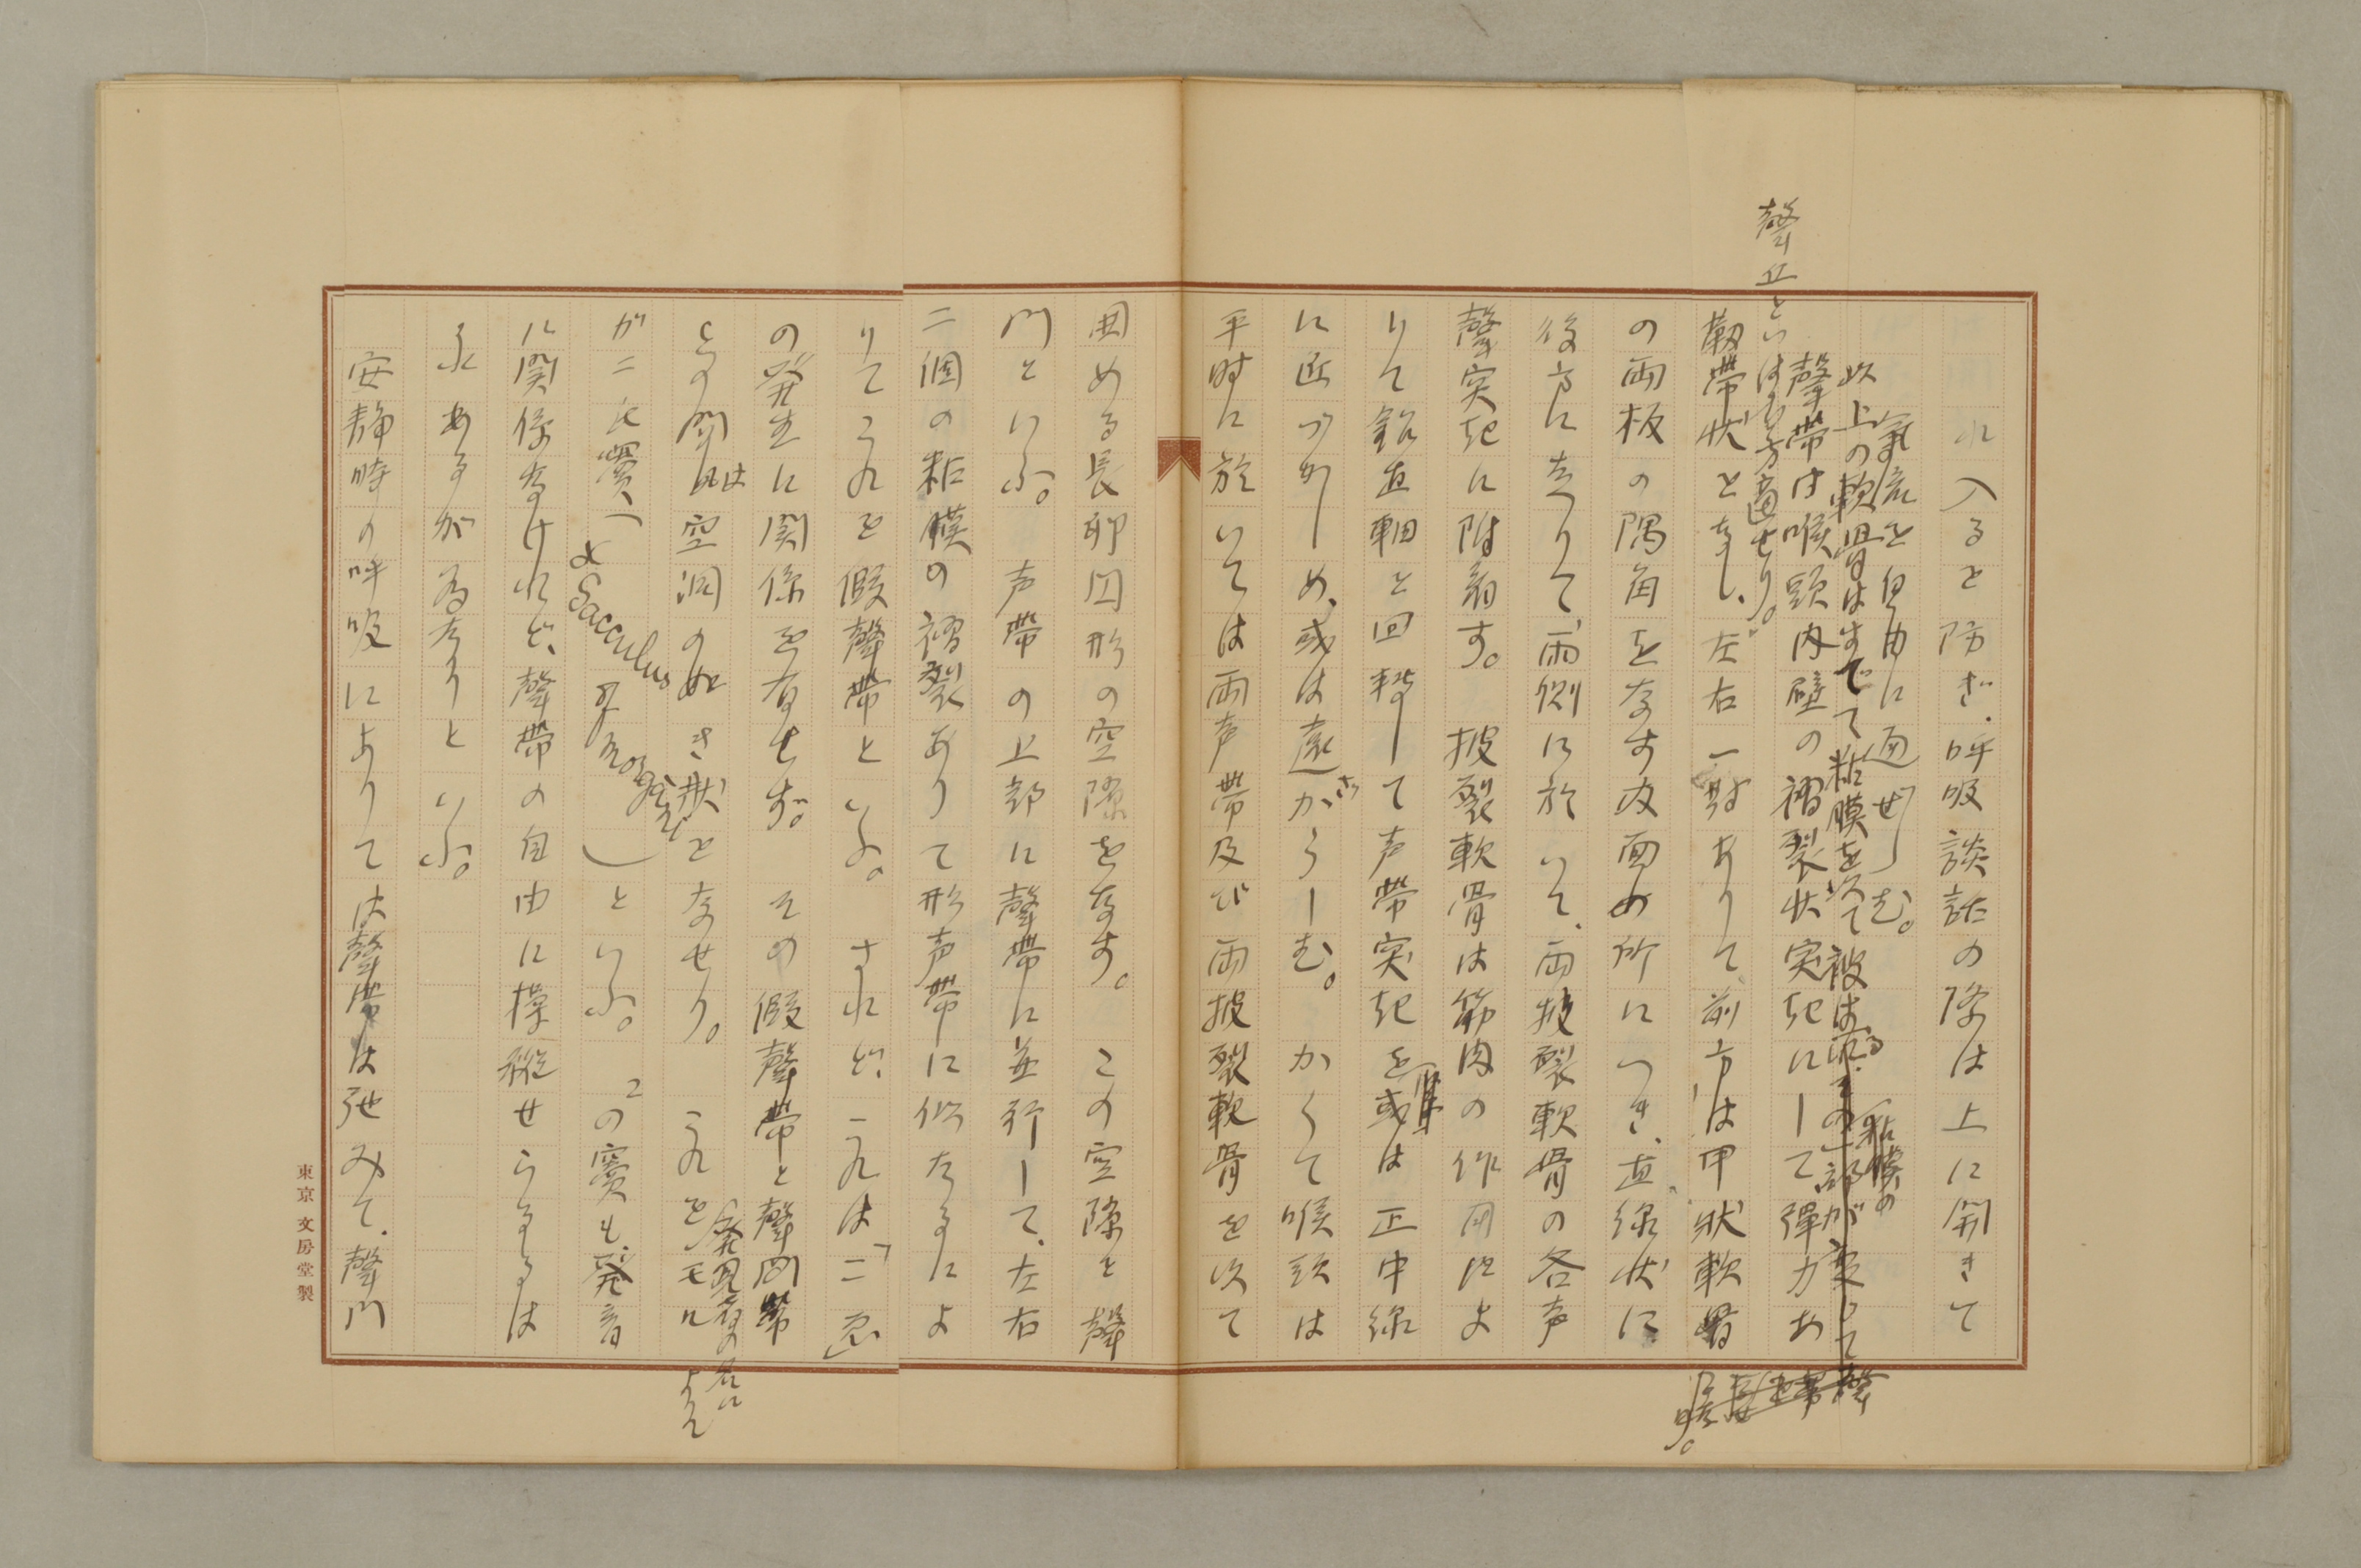 れ入るを防ぎ、呼吸談話の際は上に開きて
氣息を自由に通ぜしむ。
以上の軟骨はすべて粘膜を以て被はる
粘膜の一部が変じて聲
聲帯は喉頭内壁の褶襞状突起にして弾力あ
聲丘といはむ方適せり。
靱帯状をなし、左右一対ありて、前方は甲状軟骨
の両板の隅角をなす内面の所につき、直線状に
後方に走りて、両側に於いて、両披裂軟骨の各声
聲突起に附着す。 披裂軟骨は筋肉の作用によ
りて鉛直軸を回転して声帯突起を或は正中線
に近づかしめ、或は遠ざからしむ。 かくて喉頭は
平時に於いては両声帯及び両披裂軟骨を以て
囲める長卵円形の空隙をなす。 この空隙を聲
門といふ。 声帯の上部に聲帯に並行して、左右
二個の粘膜の褶襞ありて形声帯に似たるによ
りてこれを假聲帯といふ。 されど、これは
の発生に関係を有せず。 その假聲帯と聲帯
との間は空洞の如き状をなせり。 これをモル
発見者の名によりて
が二氏竇(
Sacculus
Morgagni
)といふ。 この竇も、発音
に関係なけれど、聲帯の自由に操縦せらるるは
これあるが為なりといふ。
安静時の呼吸にありては聲帯は弛みて、聲門
東京 文房堂製